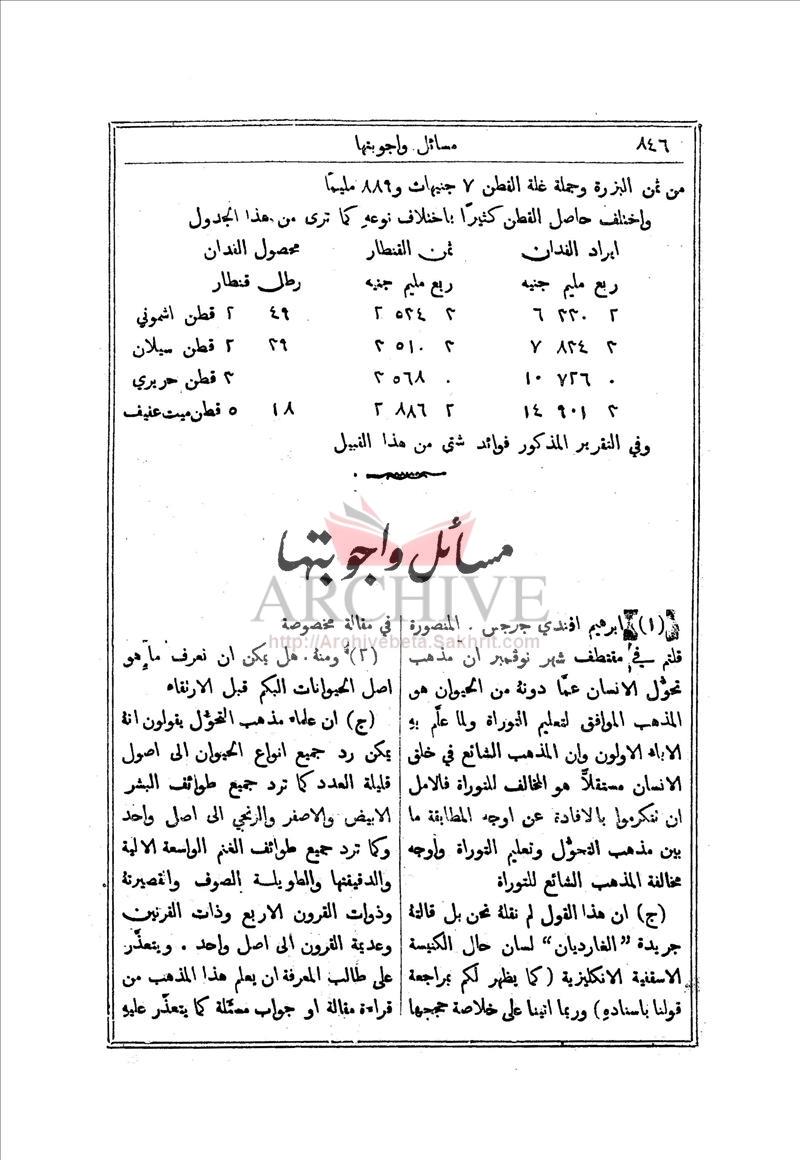 ٨٤٦
مسائل واجوبتها
من ثمن البزرة وجملة غلة القطن ٧ جنيهات و٨٨٩ مليمًا
واختلف حاصل القطن كثيرًا باختلاف نوعهِ كما ترى من هذا الجدول
ايراد الفدان ثمن القنطار محصول الفدان
ربع مليم جنيه ربع مليم جنيه رطل قنطار
٢ ٢٢٠ ٦ ٢ ٥٢٤ ٢ ٤٩ ٢ قطن اشموني
٣ ٨٢٤ ٧ ٢ ٥١٠ ٢ ٢٩ ٢ قطن سيلان
٠ ٧٢٦ ١٠ ٠ ٥٦٨ ٢ ٣ قطن حريري
٣ ٩٠١ ١٤ ٢ ٨٨٦ ٢ ١٨ ٥ قطن ميت عفيف
وفي التقرير المذكور فوائد شتى من هذا القبيل
مسائل واجوبتها
ARCHIVE
http://Archivebeta.Sakhrit.com
(١) ابرهيم افندي جرجس . المنصورة
قلتم في مقتطف شهر نوفمبر ان مذهب
تحوُّل الانسان عمَّا دونهُ من الحيوان هو
المذهب الموافق لتعليم التوراة ولما علَّم بهِ
الاباء الاولون وان المذهب الشائع في خلق
الانسان مستقلاًّ هو المخالف للتوراة فالامل
ان تتكرموا بالافادة عن اوجه المطابقة ما
بين مذهب التحوُّل وتعليم التوراة واوجه
مخالفة المذهب الشائع للتوراة
(ج) ان هذا القول لم نقلهُ نحن بل قالتهُ
جريدة "الغارديان" لسان حال الكنيسة
الاسقفية الانكليزية (كما يظهر لكم بمراجعة
قولنا باسنادهِ) وربما اتينا على خلاصة حججها
في مقالة مخصوصة
(٢) ومنهُ . هل يمكن ان نعرف ما هو
اصل الحيوانات البكم قبل الارتقاء
(ج) ان علماء مذهب التحوُّل يقولون انهُ
يمكن رد جميع انواع الحيوان الى اصول
قليلة العدد كما ترد جميع طوائف البشر
الابيض والاصفر والزنجي الى اصل واحد
وكما ترد جميع طوائف الغنم الواسعة الالية
والدقيقتها والطويلة الصوف والقصيرتهُ
وذوات القرون الاربع وذات القرنين
وعديمة القرون الى اصل واحد . ويتعذَّر
على طالب المعرفة ان يعلم هذا المذهب من
قراءة مقالة او جواب مسئلة كما يتعذَّر عليهِ